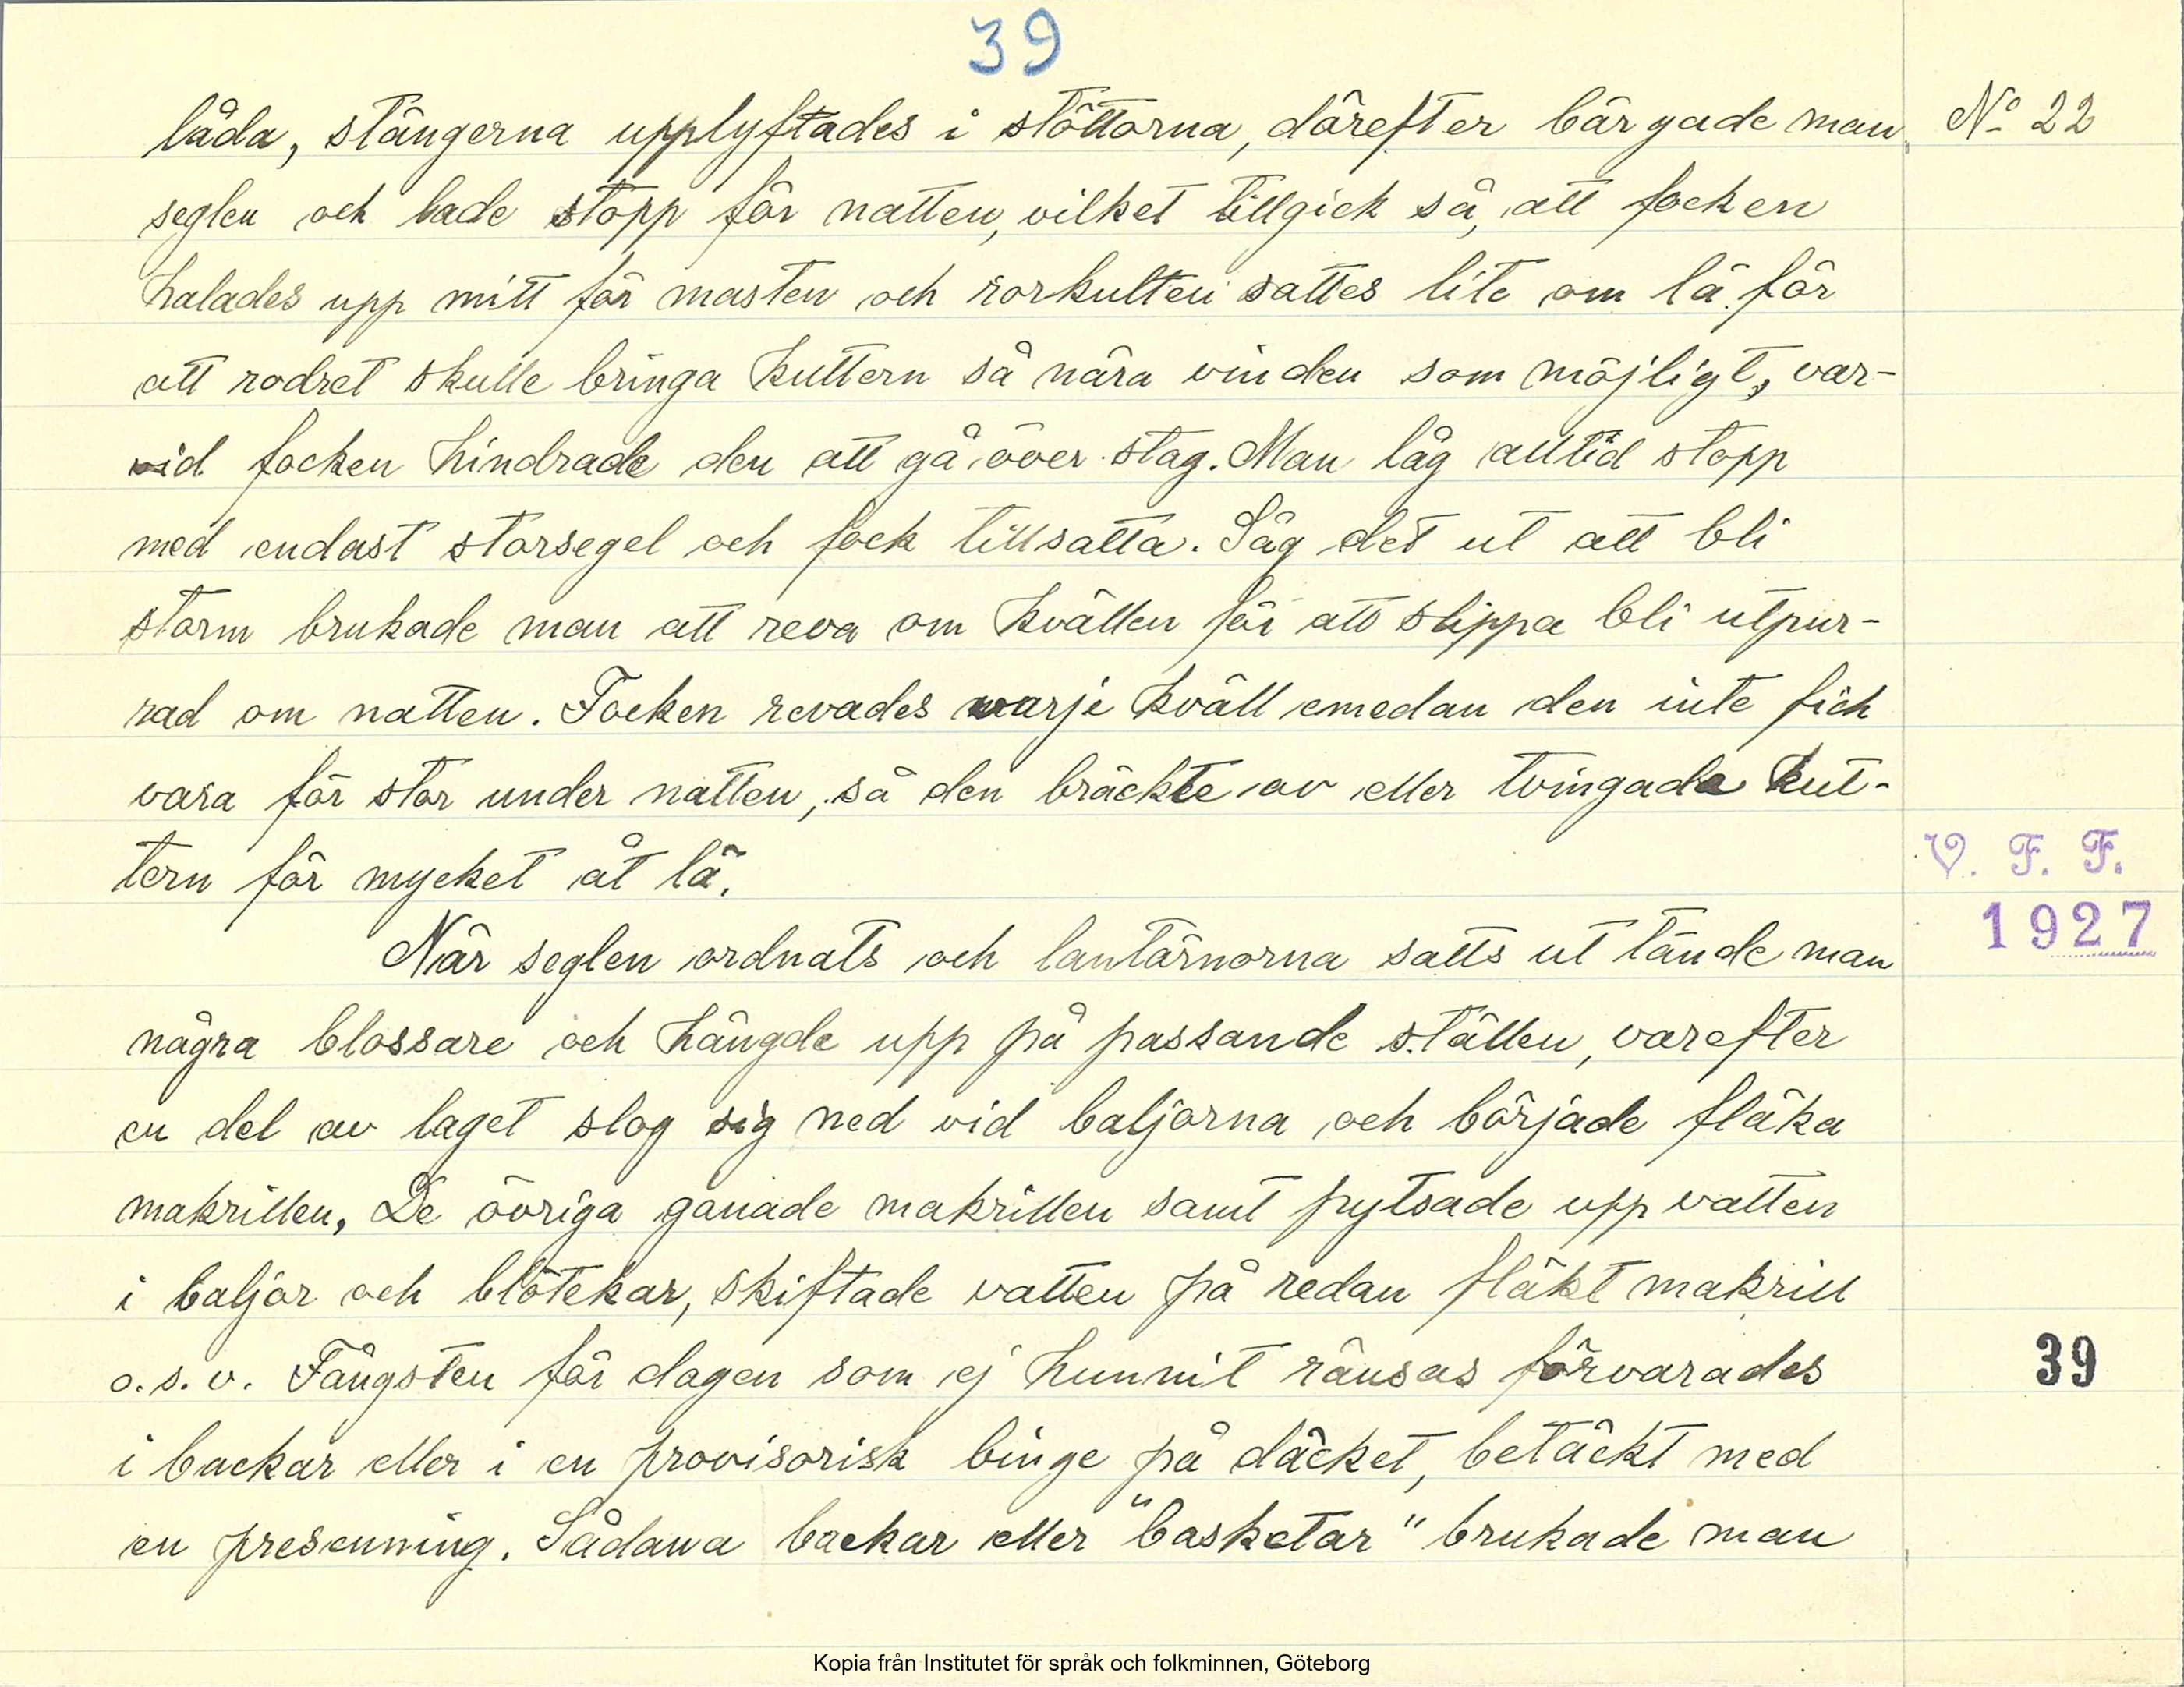 39
låda, stängerna upplyftades i stöttorna, därefter bärgade man
Nº 22
seglen och lade stopp för natten, vilket tillgick så, att focken
halades upp mitt för masten och rorkulten sattes lite om lä för
att rodret skulle bringa kuttern så nära vinden som möjligt, var-
vid focken hindrade den att gå över stag. Man låg alltid stopp
med endast storsegel och fock tillsatta. Såg det ut att bli
storm brukade man att reva om kvällen för att slippa bli utpur-
rad om natten. Focken revades varje kväll emedan den inte fick
vara för stor under natten, så den bräckte av eller tvingade kut-
tern för mycket åt lä.
V. F. F.
När seglen ordnats och lantärnorna satts ut tände man
1927
några blossare och hängde upp på passande ställen, varefter
en del av laget slog sig ned vid baljorna och började fläka
makrillen. De övriga ganade makrillen samt pytsade upp vatten
i baljor och blötekar, skiftade vatten på redan fläkt makrill
o.s.v. Fångsten för dagen som ej hunnit ränsas förvarades
39
i backar eller i en provisorisk binge på däcket, betäckt med
en presenning. Sådana backar eller "basketar" brukade man
Kopia från Institutet för språk och folkminnen, Göteborg